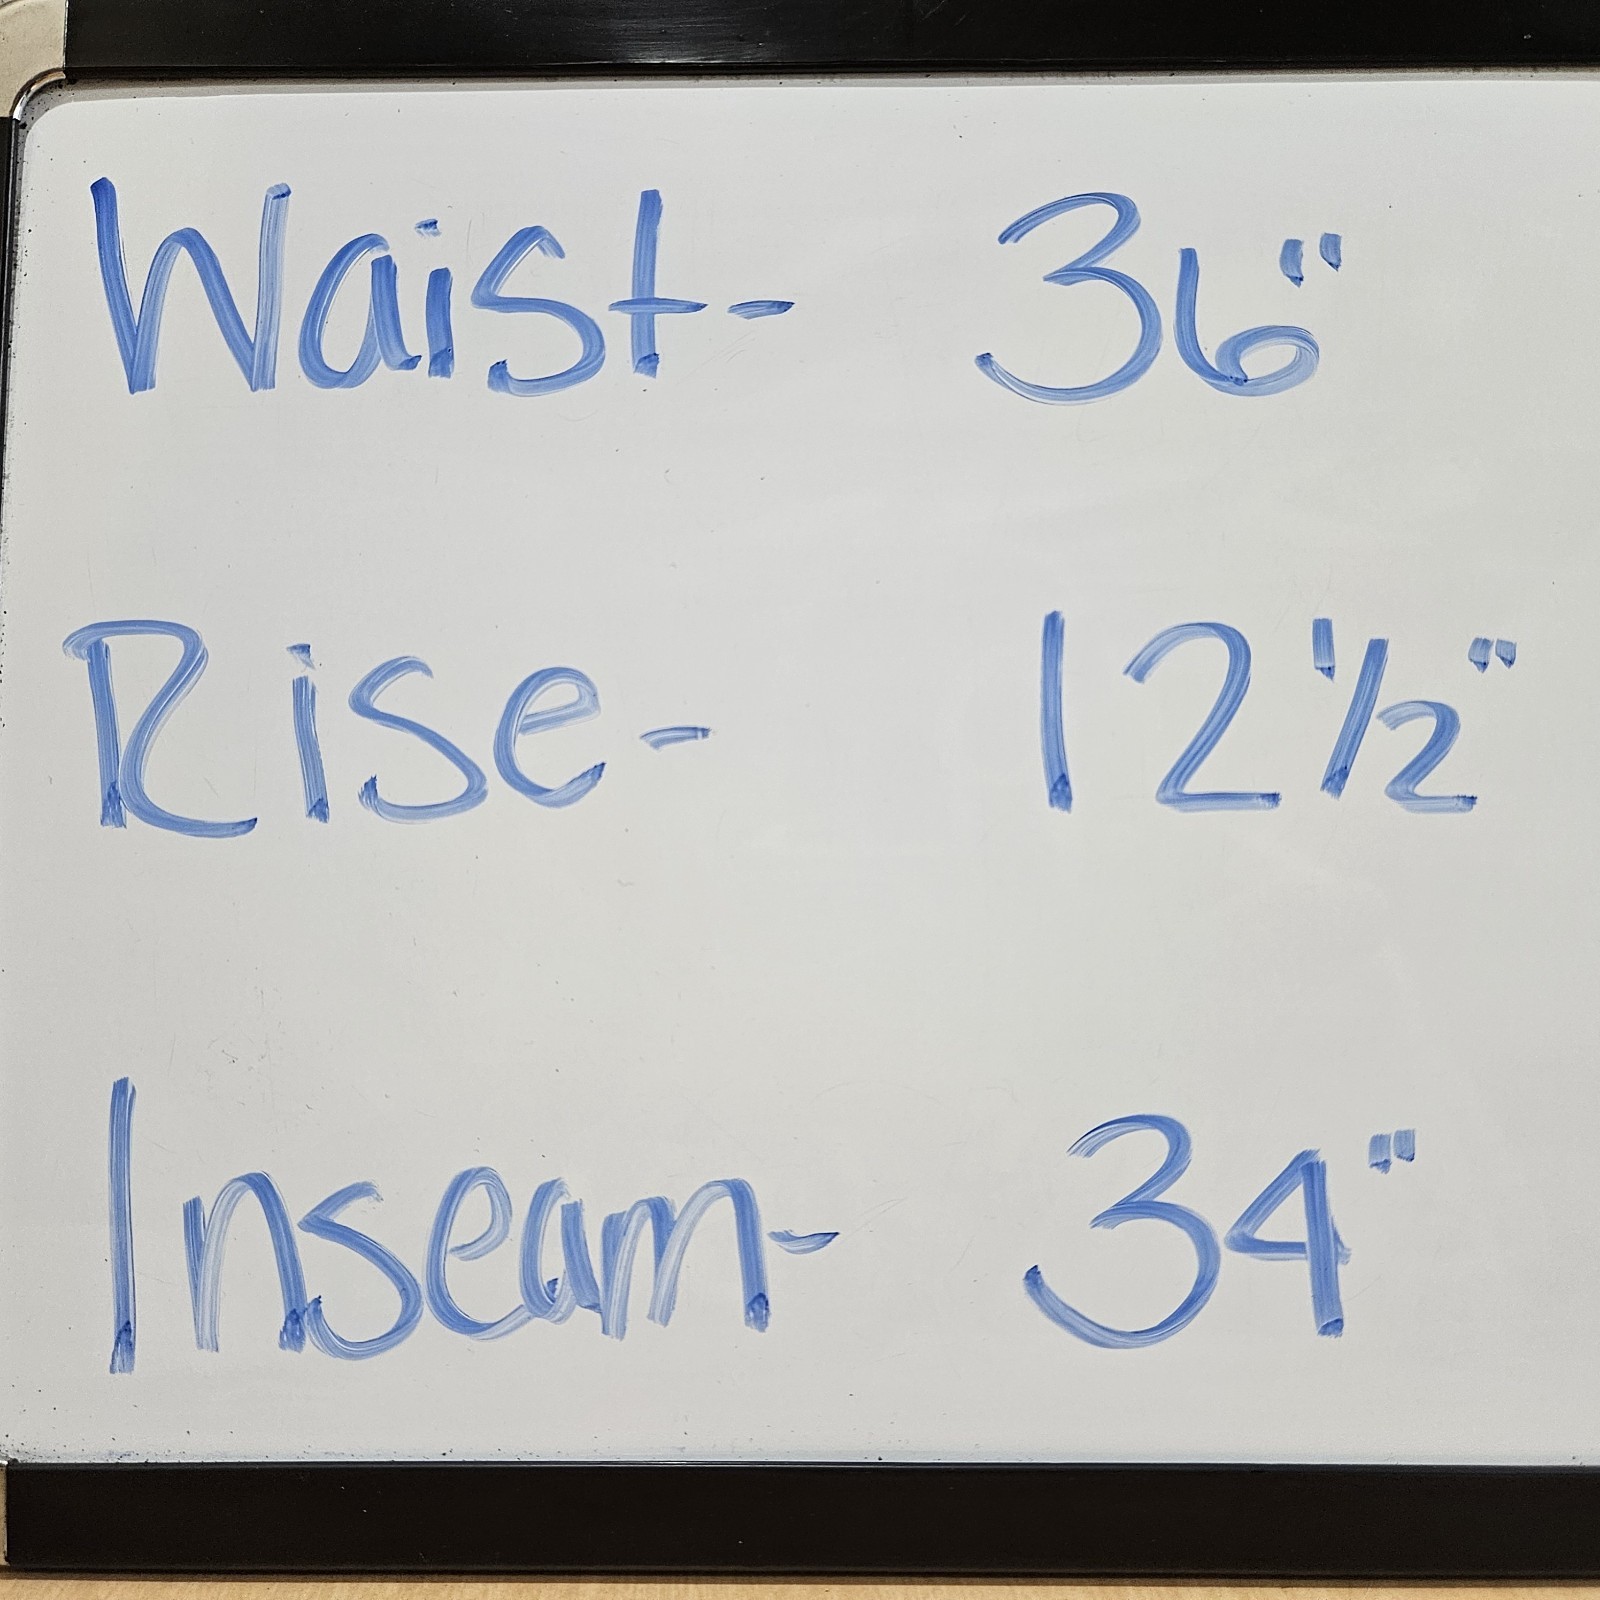 Waist- 36"
Rise- 12 1/2"
Inseam- 34"